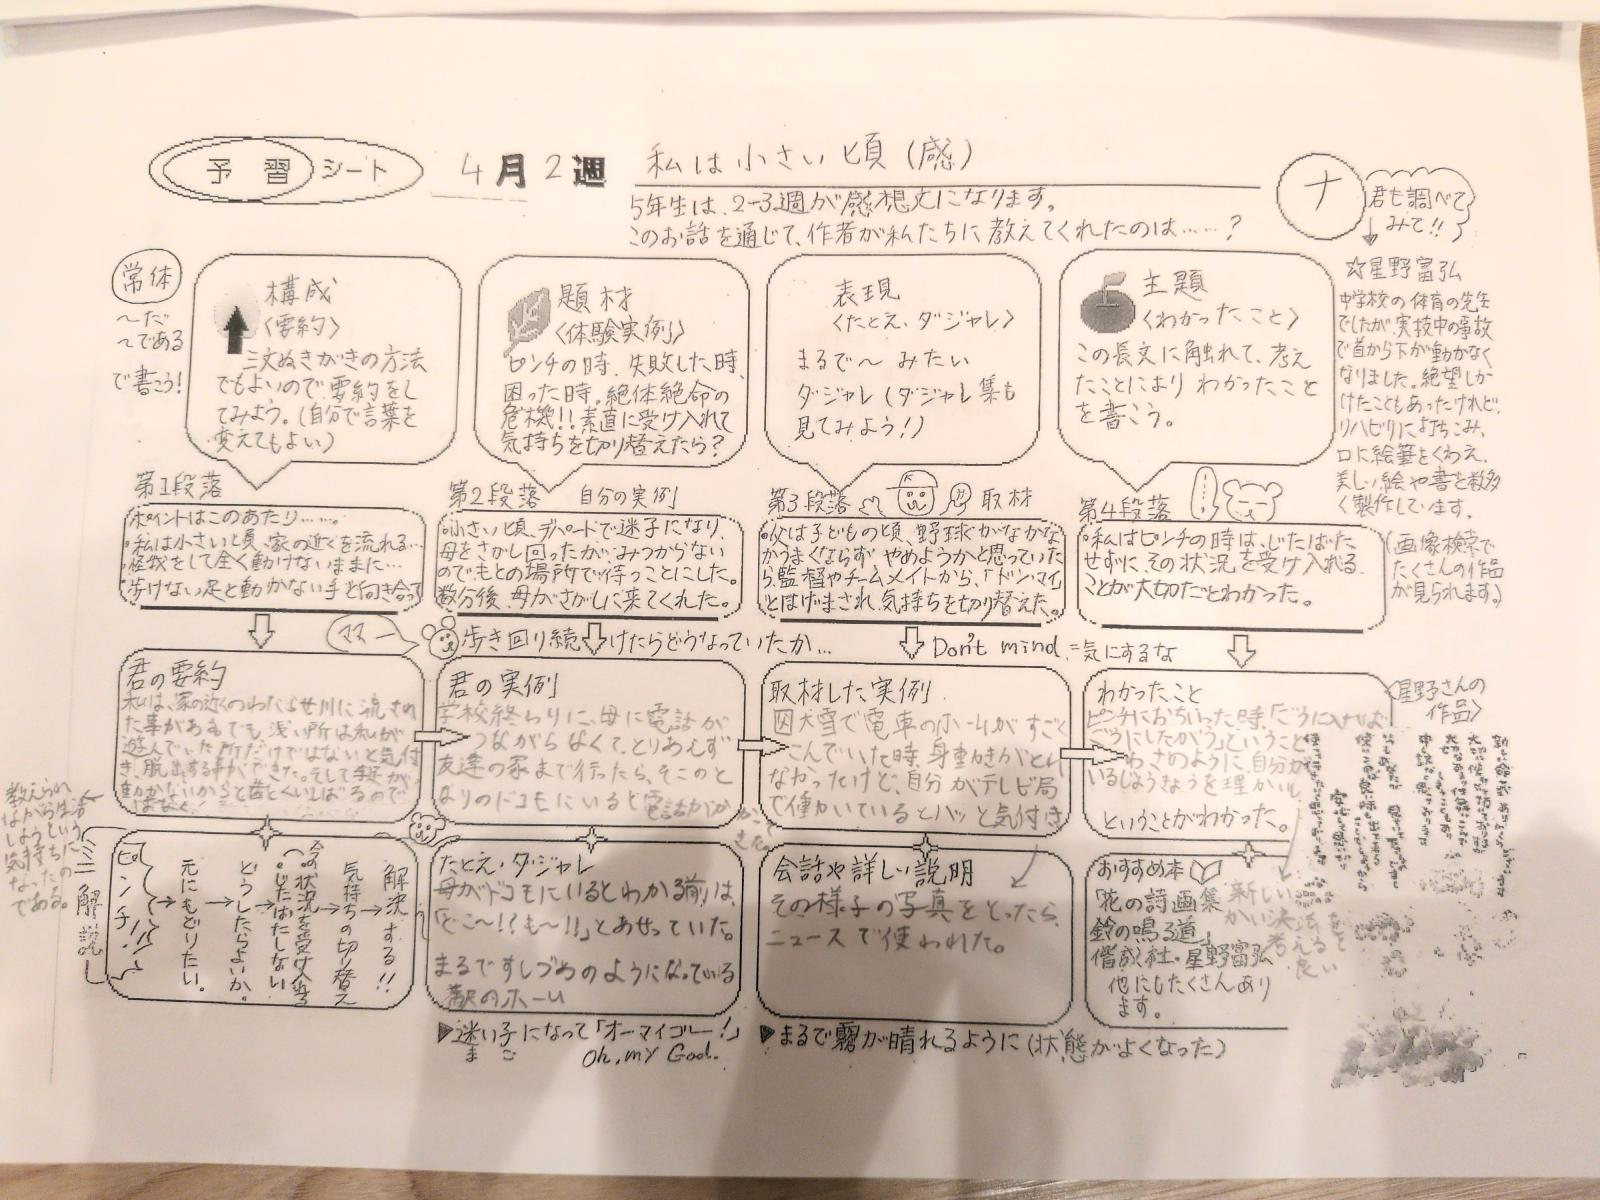 予習シート
4月2週
私は小さい頃(感)
5年生は、2-3週が感想文になります。
このお話を通じて、作者が私たちに教えてくれたのは……?
ナ
君も調べて
みて!!
常体
〜だ
〜である
で書こう!
構成
〈要約〉
三文ぬきがきの方法
でもよいので要約をし
てみよう。(自分で言葉を
変えてもよい)
題材
〈体験実例〉
ピンチの時、失敗した時、
困った時。絶体絶命の
危機!!素直に受け入れて
気持ちを切り替えたら?
表現
〈たとえ・ダジャレ〉
まるで〜みたい
ダジャレ(ダジャレ集も
見てみよう!)
主題
〈わかったこと〉
この長文に触れて、考え
たことにより わかったこと
を書こう。
☆星野富弘
中学校の体育の先生
でしたが、実技中の事故
で首から下が動かなく
なりました。絶望しか
けたこともあったけれど、
リハビリに打ちこみ、
口に絵筆をくわえ、
美しい絵や書を数多
く製作しています。
(画像検索で
たくさんの作品
が見られます。)
第1段落
ポイントはこのあたり……。
・私は小さい頃、家の近くを流れる…
・怪我をして全く動けないままに…
・歩けない足と動かない手と向き合って
第2段落 自分の実例
・小さい頃、デパートで迷子になり、
母をさがし回ったが、みつからない
のでもとの場所で待つことにした。
数分後、母がさがしに来てくれた。
第3段落 取材
・父は子どもの頃、野球がなかな
かうまくならず やめようかと思っていた
ら、監督やチームメイトから、「ドンマイ」
とはげまされ、気持ちを切り替えた。
第4段落
・私はピンチの時は、じたばた
せずに、その状況を受け入れる
ことが大切だとわかった。
ママー
歩き回り続けたらどうなっていたか…
Don't mind.=気にするな
君の要約
私は、家の近くのわたらせ川に流され
た事がある。でも、浅い所は私が
遊んでいた所だけではないと気付
き、脱出する事ができた。そして手足が
動かないからと歯をくいしばるので
はなく、
教えられ
ながら生活
しようという
気持ちに
なったの
である。
君の実例
学校終わりに、母に電話が
つながらなくて、とりあえず
友達の家まで行ったら、そこのと
なりのドコモにいると電話がか
かってきた。
取材した実例
大雪で電車のホームがすごく
こんでいた時、身動きがとれ
なかったけど、自分がテレビ局
で働いているとハッと気付き
わかったこと
ピンチにおちいった時、「ごうに入れば
ごうにしたがう」ということ
わざのように、自分が
いるじょうきょうを理かいし
ということがわかった。
新しい
かい決法を
考えると
良い
〈星野さんの
作品〉
ミニ解説
ピンチ!!
→元にもどりたい。
→どうしたらよいか。
→今の状況を受け入れる
(じたばたしない
→気持ちの切り替え
→解決する!!
たとえ・ダジャレ
母がドコモにいるとわかる前は、
「どこ〜!?も〜!!」とあせっていた。
まるですしづめのようになっている
駅のホーム
会話や詳しい説明
その様子の写真をとったら、
ニュースで使われた。
おすすめ本
「花の詩画集
鈴の鳴る道」
偕成社・星野富弘
他にもたくさんあり
ます。
▶迷い子になって「オーマイゴー!」
まご
Oh, my God.
▶まるで霧が晴れるように(状態がよくなった)